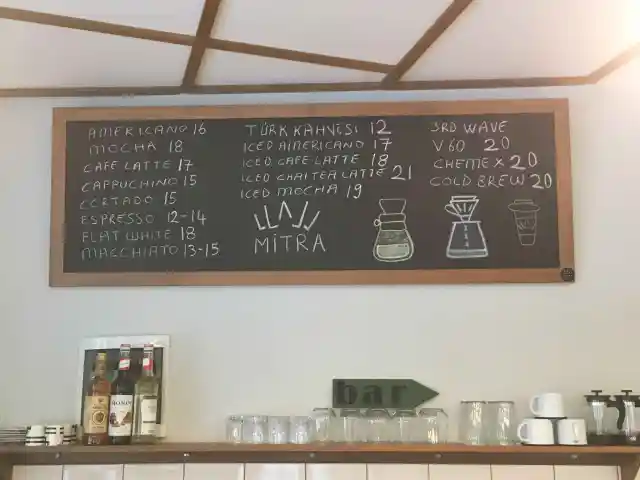 AMERICANO 16
MOCHA 18
CAFE LATTE 17
CAPPUCHINO 15
CORTADO 15
ESPRESSO 12-14
FLAT WHITE 18
MACCHIATO 13-15
TÜRK KAHVESI 12
ICED AMERICANO 17
ICED CAFE LATTE 18
ICED CHAI TEA LATTE 21
ICED MOCHA 19
MİTRA
3RD WAVE
V60 20
CHEMEX 20
COLD BREW 20
bar
MONIN